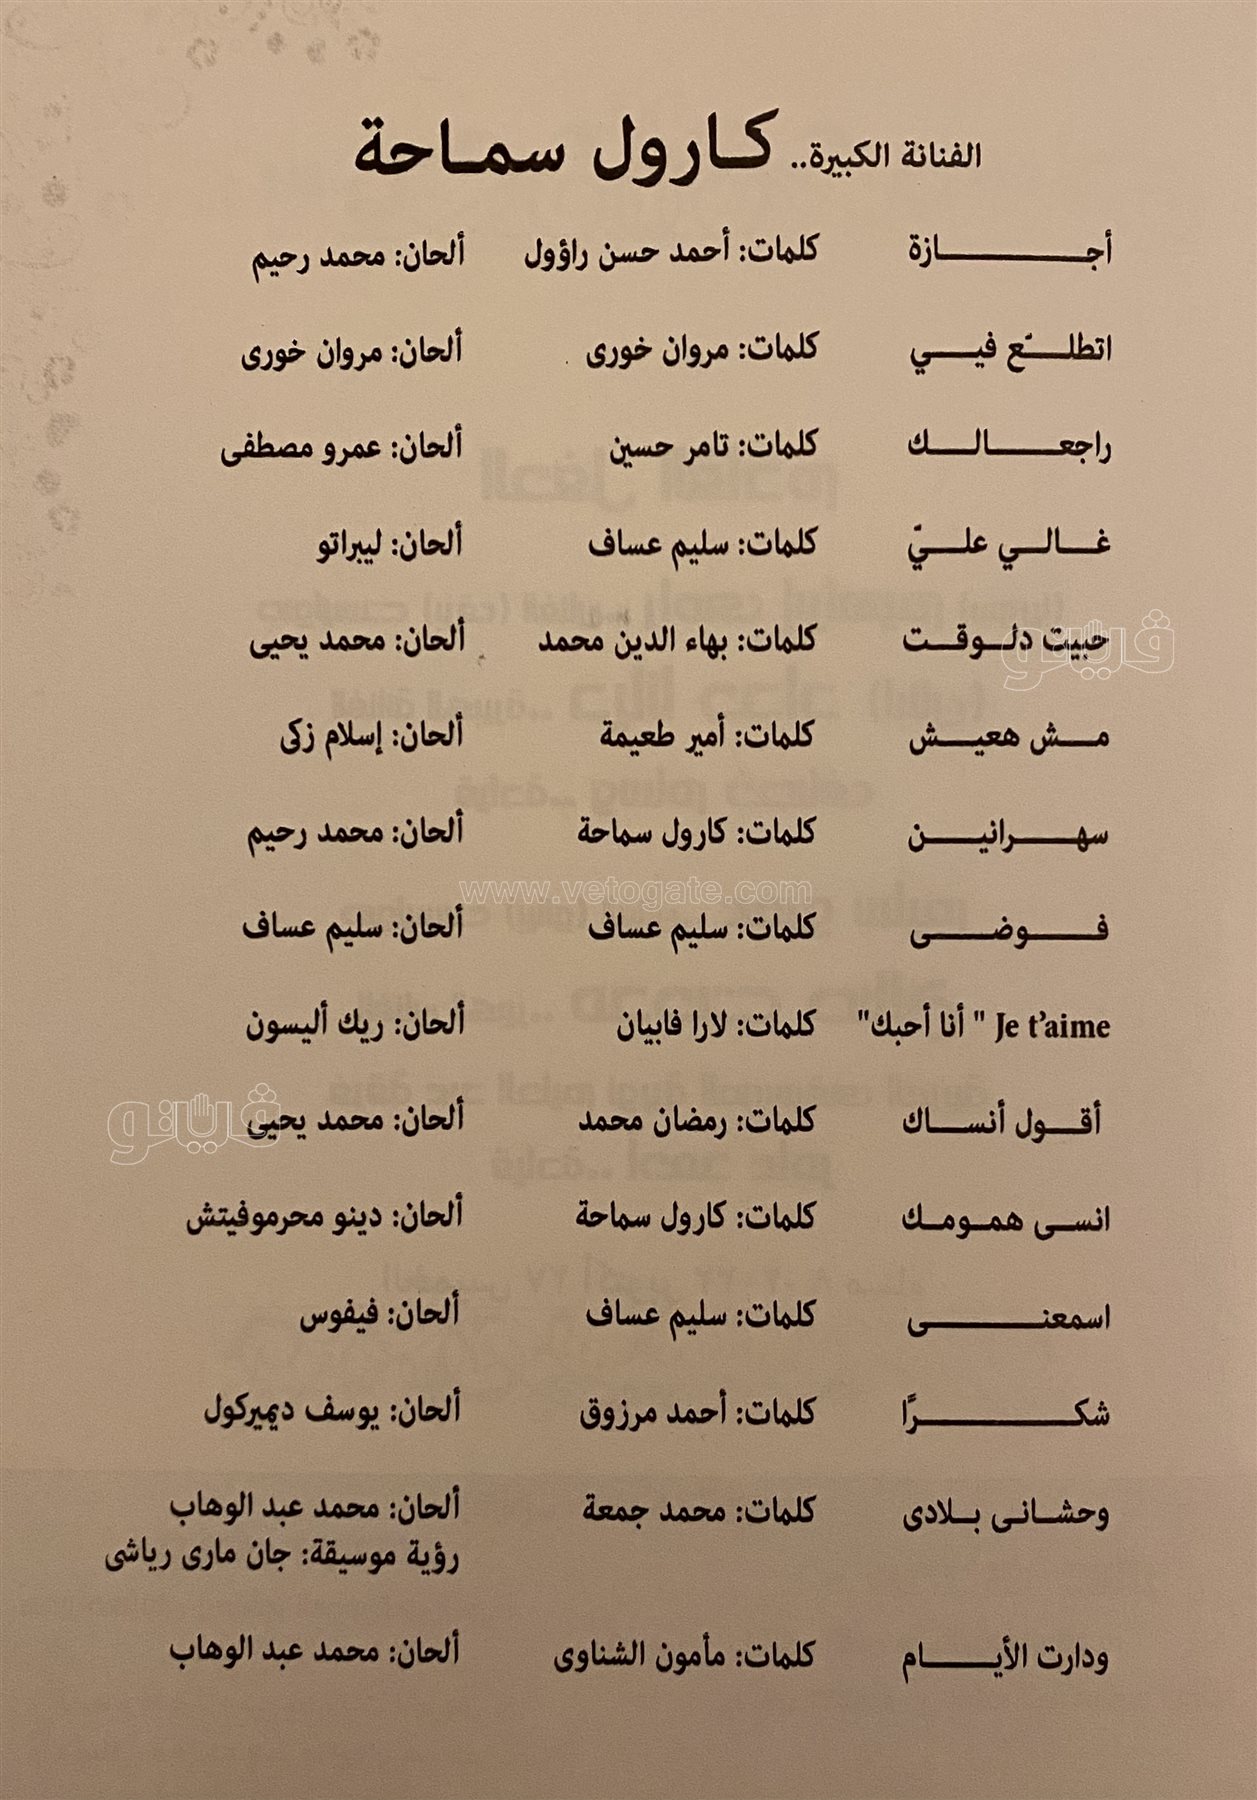 الفنانة الكبيرة.. كارول سماحة
أجازة كلمات: أحمد حسن راؤول ألحان: محمد رحيم
اتطلّع فيي كلمات: مروان خورى ألحان: مروان خورى
راجعالك كلمات: تامر حسين ألحان: عمرو مصطفى
غالي عليّ كلمات: سليم عساف ألحان: ليبراتو
حبيت دلوقت كلمات: بهاء الدين محمد ألحان: محمد يحيى
فيتو
مش هعيش كلمات: أمير طعيمة ألحان: إسلام زكى
سهرانين كلمات: كارول سماحة ألحان: محمد رحيم
www.vetogate.com
فوضى كلمات: سليم عساف ألحان: سليم عساف
Je t’aime " أنا أحبك" كلمات: لارا فابيان ألحان: ريك أليسون
أقول أنساك كلمات: رمضان محمد ألحان: محمد يحيى
فيتو
انسى همومك كلمات: كارول سماحة ألحان: دينو محرموفيتش
اسمعنى كلمات: سليم عساف ألحان: فيفوس
شكرًا كلمات: أحمد مرزوق ألحان: يوسف ديميركول
وحشانى بلادى كلمات: محمد جمعة ألحان: محمد عبد الوهاب
رؤية موسيقة: جان مارى رياشى
ودارت الأيام كلمات: مأمون الشناوى ألحان: محمد عبد الوهاب